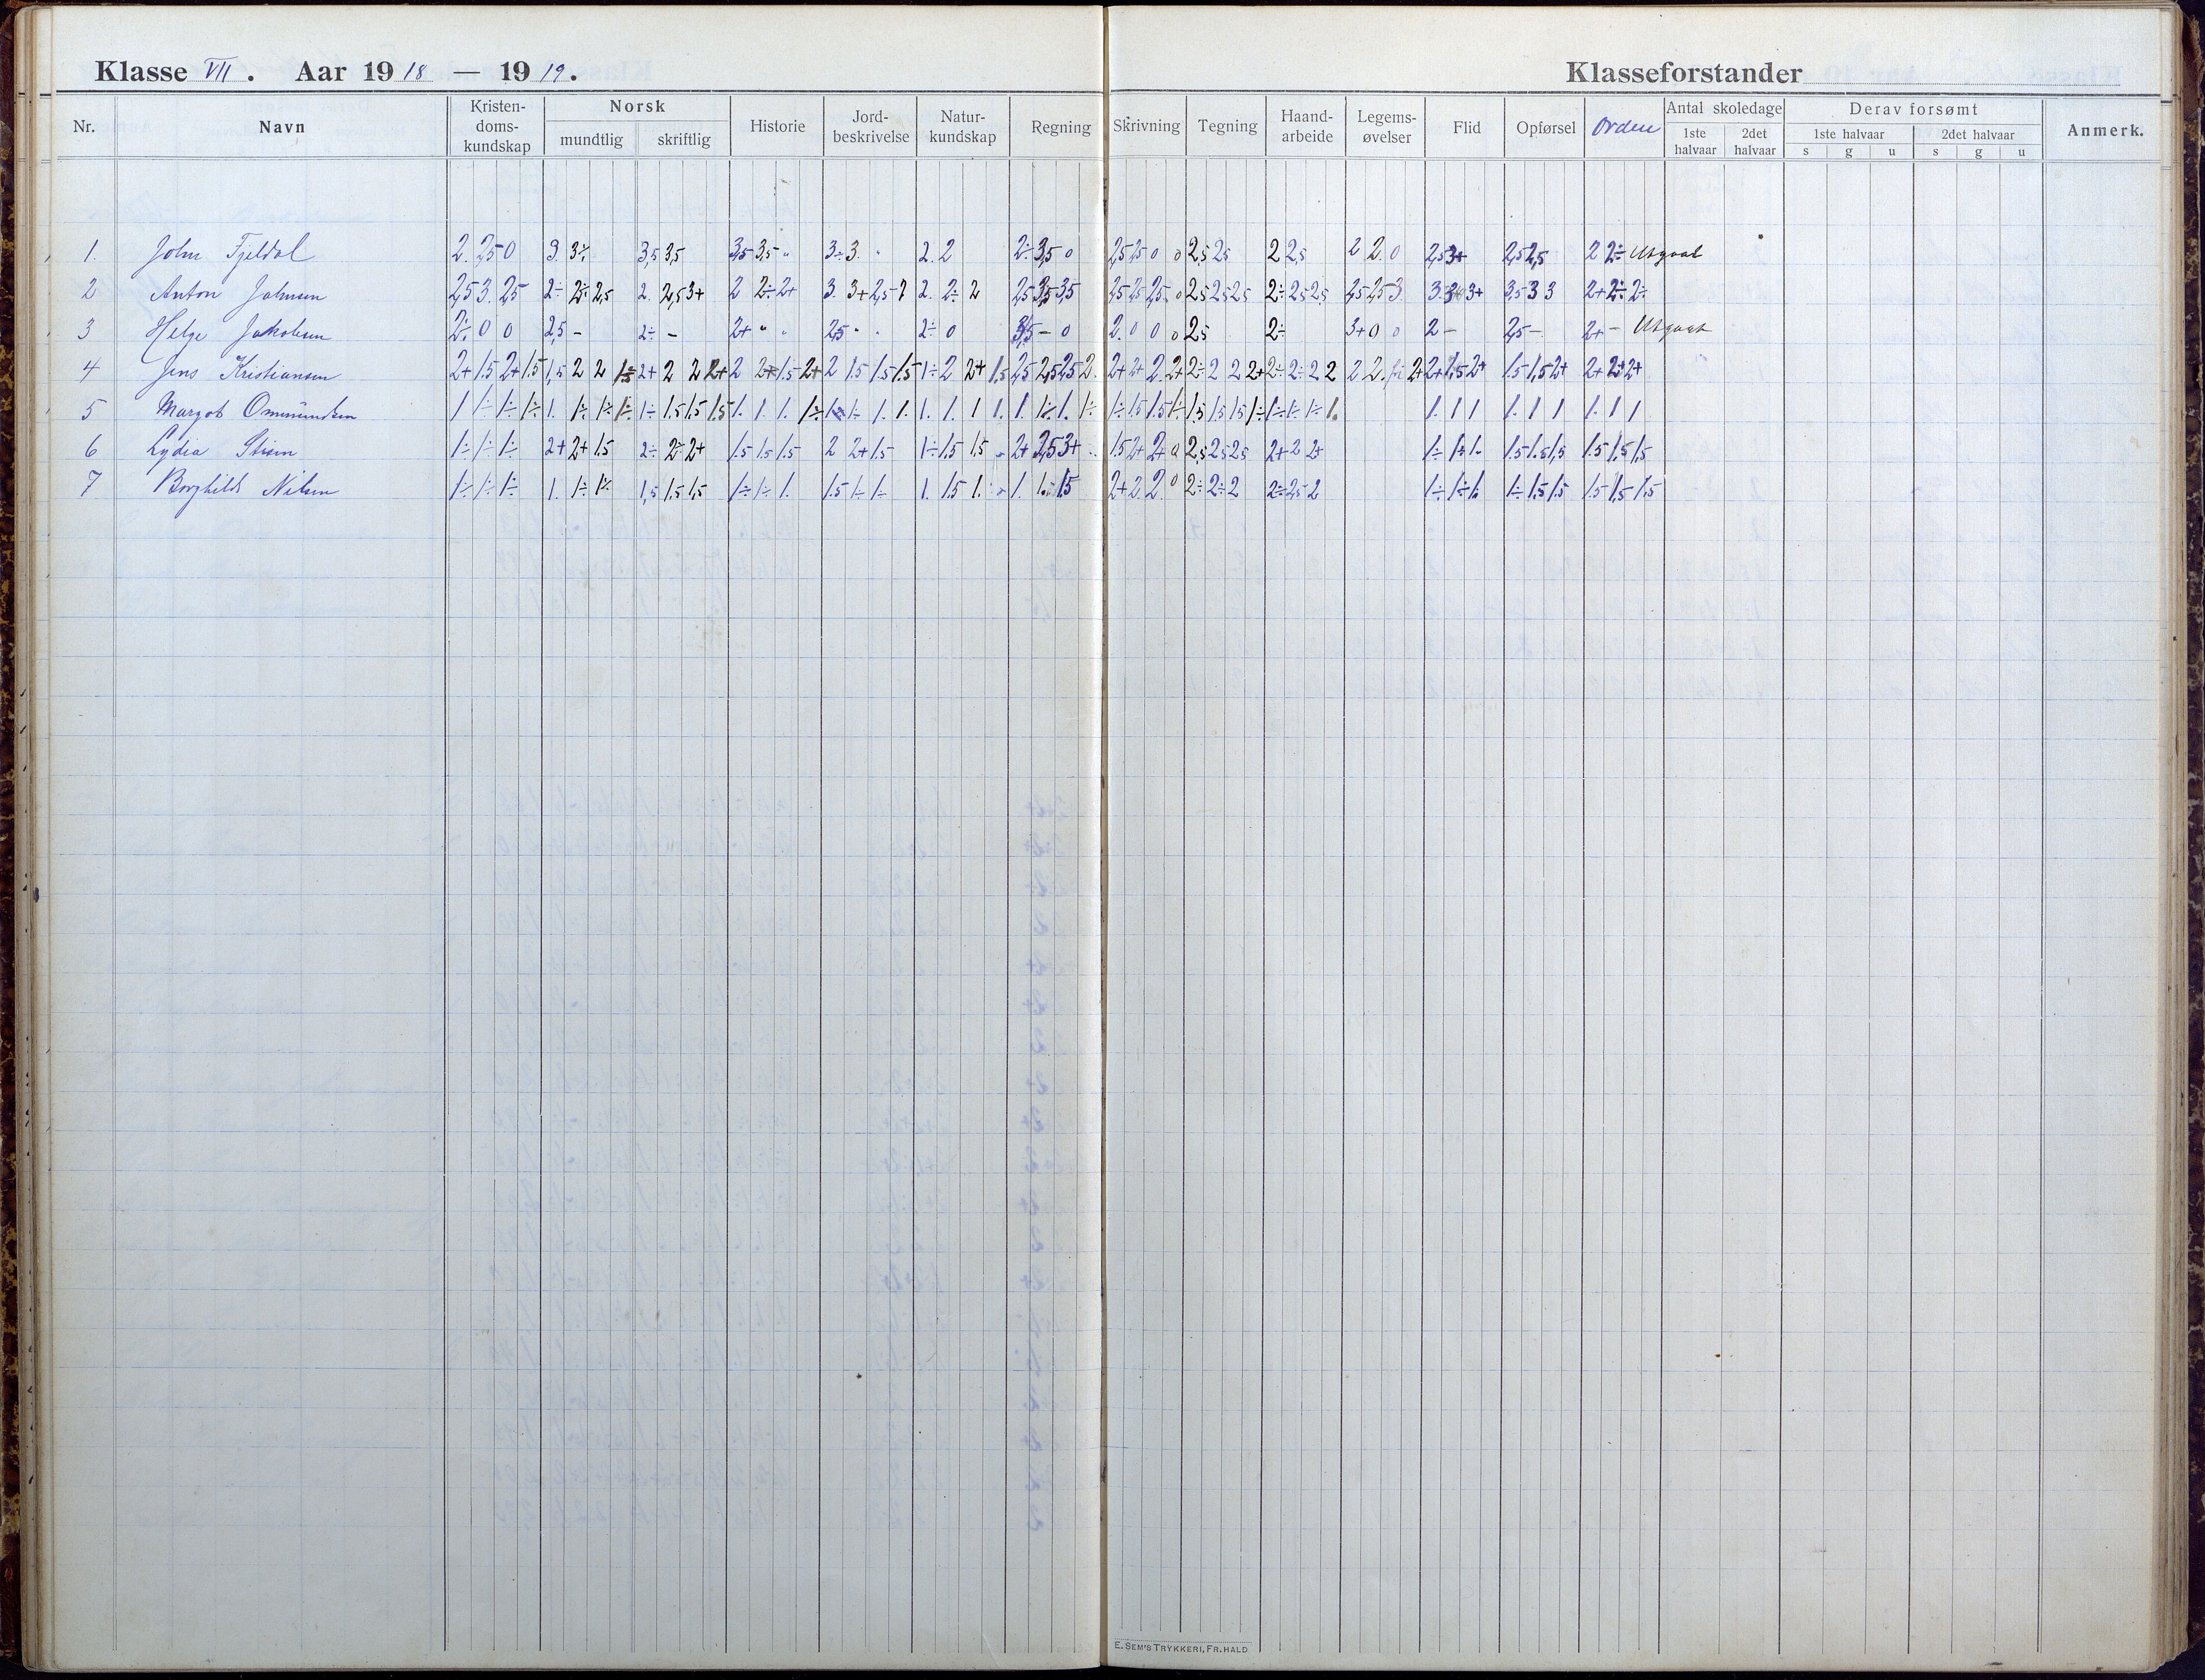 Klasse VII. Aar 1918 — 1919. Klasseforstander
Nr. Navn Kristendomskundskap Norsk mundtlig skriftlig Historie Jordbeskrivelse Naturkundskap Regning Skrivning Tegning Haandarbeide Legemsøvelser Flid Opførsel Orden Antal skoledage 1ste halvaar 2det halvaar Derav forsømt 1ste halvaar s g u 2det halvaar s g u Anmerk.
1. John Fjeldal 2. 2,5 0 3. 3÷ 3,5 3,5 3,5 3,5 " 3÷ 3. " 2. 2 2÷ 3,5 0 2,5 2,5 0 0 2,5 2,5 2 2,5 2 2. 0 2,5 3+ 2,5 2,5 2 2÷ Utgaat
2 Anton Johnsen 2,5 3. 2,5 2÷ 2÷ 2,5 2. 2,5 3+ 2 2÷ 2+ 3. 3+ 2,5 2. 2÷ 2 2,5 3,5 3,5 2,5 2,5 2,5 0 2,5 2,5 2,5 2÷ 2,5 2,5 2,5 2,5 3. 3. 3+ 3,5 3 3 2+ 2÷ 2÷
3 Helge Jakobsen 2÷ 0 0 2,5 - 2÷ - 2+ " " 2,5 " " 2÷ 0 3,5 - 0 2. 0 0 0 2,5 2÷ 3+ 0 0 2 - 2,5 - 2+ - Utgaat
4 Jens Kristiansen 2+ 1.5 2+ 1.5 1,5 2 2 2+ 2 2 2+ 2 2+ 1.5 2+ 2 1.5 1.5 1.5 1÷ 2 2+ 1,5 2,5 2,5 2,5 2. 2+ 2+ 2. 2+ 2÷ 2 2 2+ 2÷ 2÷ 2 2 2 2. 2+ 2+ 1,5 2+ 1.5 1,5 2+ 2+ 2+ 2+
5 Margot Ommundsen 1 1÷ 1÷ 1÷ 1. 1÷ 1÷ 1÷ 1÷ 1.5 1.5 1.5 1. 1. 1. 1÷ 1÷ 1÷ 1. 1. 1. 1. 1 1. 1. 1÷ 1. 1÷ 1÷ 1.5 1.5 1÷ 1.5 1.5 1.5 1÷ 1÷ 1÷ 1÷ 1. 1. 1 1 1. 1 1 1. 1 1
6 Lydia 1÷ 1÷ 1÷ 2+ 2+ 1.5 2÷ 2÷ 2+ 1.5 1.5 1.5 2 2+ 1.5 1÷ 1.5 1.5 2+ 2,5 3+ 1.5 2+ 2+ 0 2,5 2,5 2,5 2+ 2 2+ 1÷ 1÷ 1. 1.5 1.5 1,5 1.5 1.5 1,5
7 Borghild Nilsen 1÷ 1÷ 1÷ 1. 1÷ 1÷ 1,5 1.5 1,5 1÷ 1÷ 1. 1.5 1÷ 1÷ 1. 1.5 1. 1. 1.5 1.5 2+ 2. 2. 0 2÷ 2÷ 2 2÷ 2,5 2 1÷ 1÷ 1. 1÷ 1.5 1.5 1.5 1,5 1.5
E. SEM'S TRYKKERI, FR.HALD